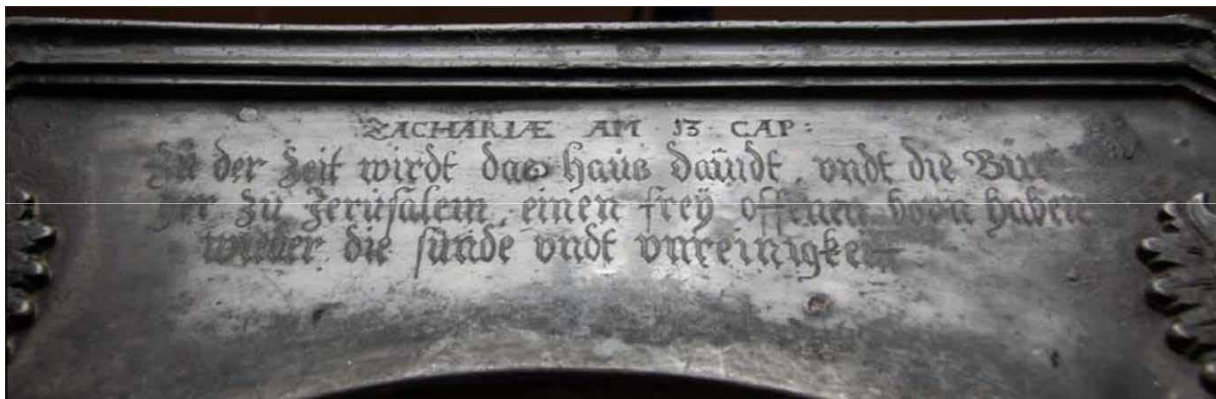 ZACHARIÆ AM 13 CAP:
Zu der Zeit wirdt das hauß Dauidt, vndt die Bür
ger zu Jerusalem, einen freÿ offenen born haben
wieder die sünde vndt vnreinigkeit